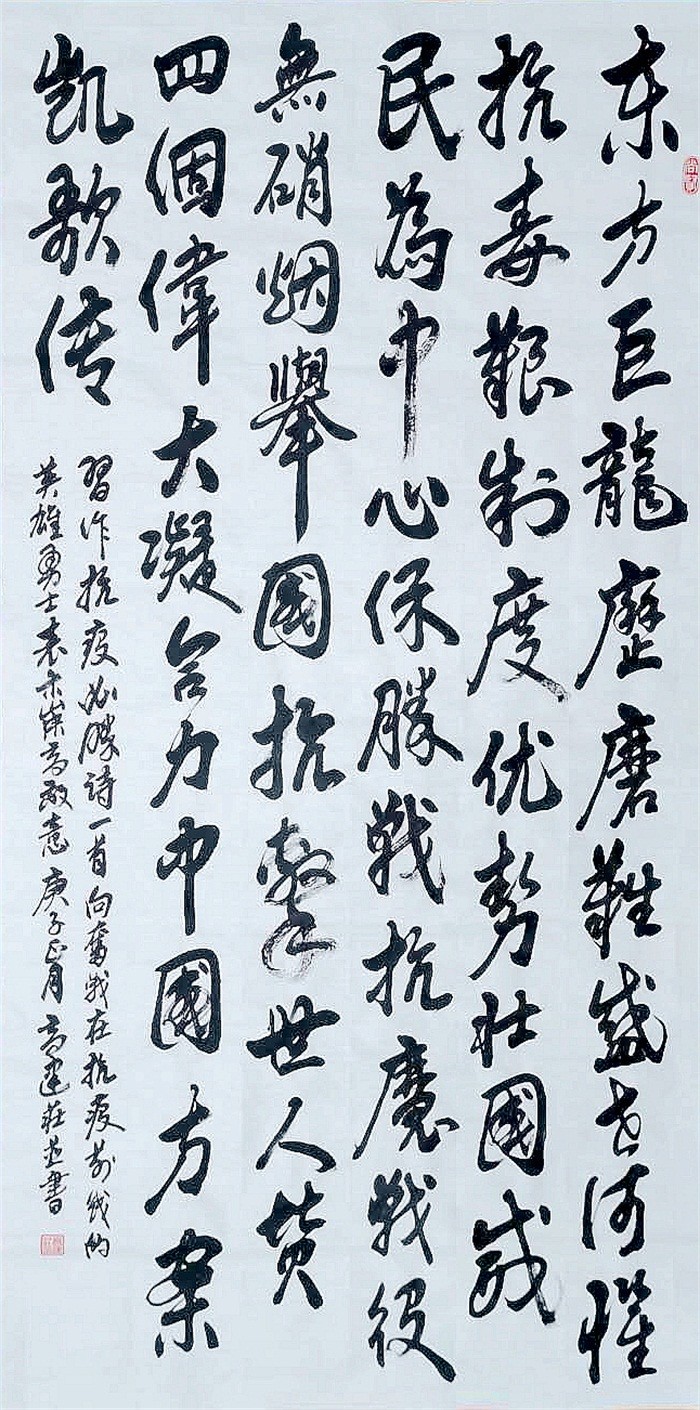 东方巨龍歷磨難盛世何懼
抗毒艱制度优勢壮國威
民為中心保勝戰抗魔戰役
無硝烟舉國抗擊世人赞
四個偉大凝合力中國方案
凯歌传
習作抗疫必勝詩一首向奮战在抗疫前线的
英雄勇士表示崇高敬意庚子正月高建莊並書